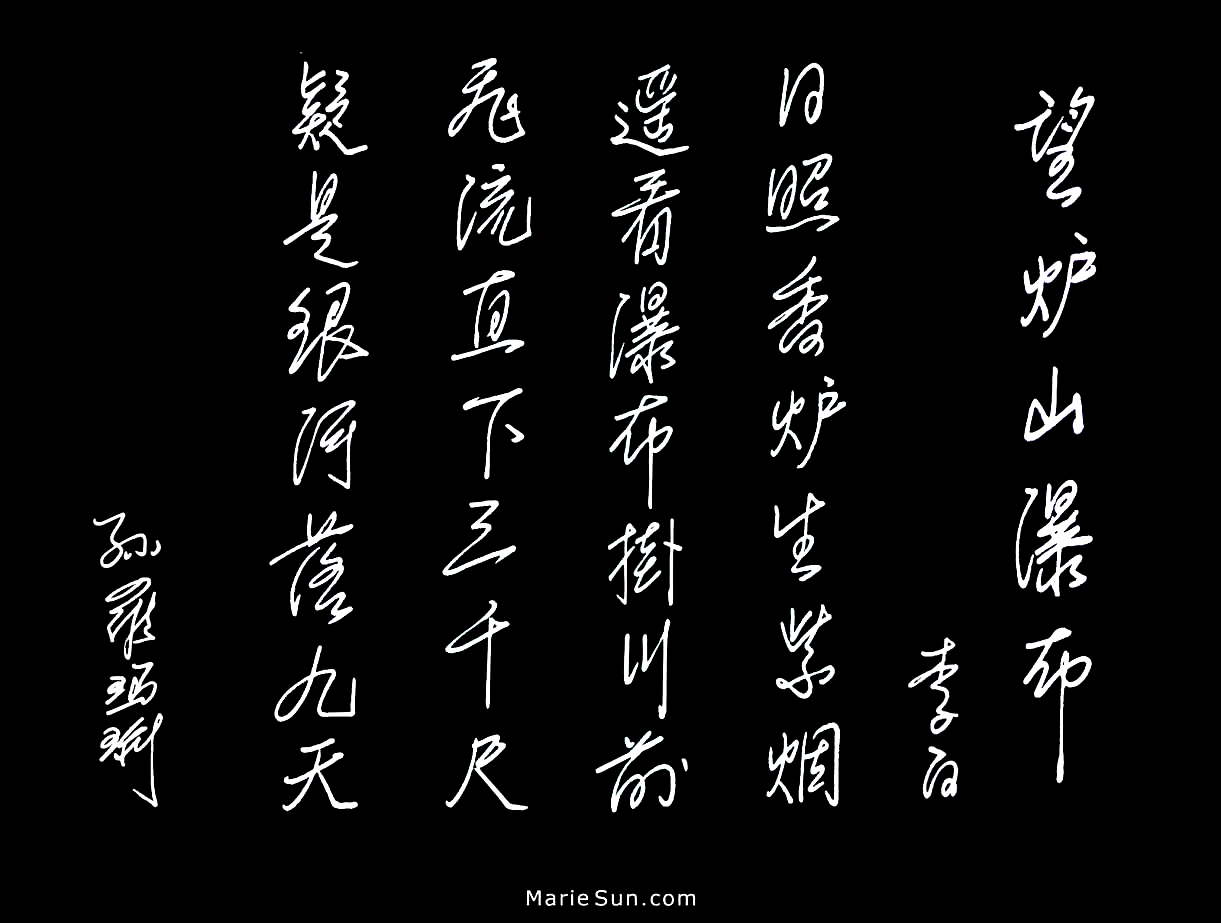 望炉山瀑布
李白
日照香炉生紫烟
遥看瀑布掛川前
飛流直下三千尺
疑是銀河落九天
孫羅瑪琍
MarieSun.com